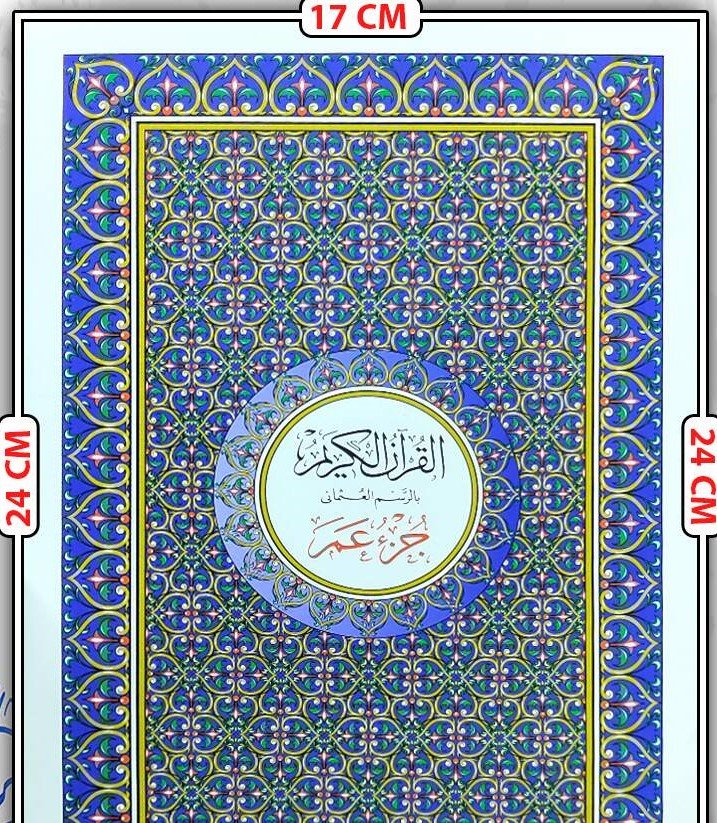 17 CM
24 CM
24 CM
القرآن الكريم
بالرسم العثماني
جزء عم